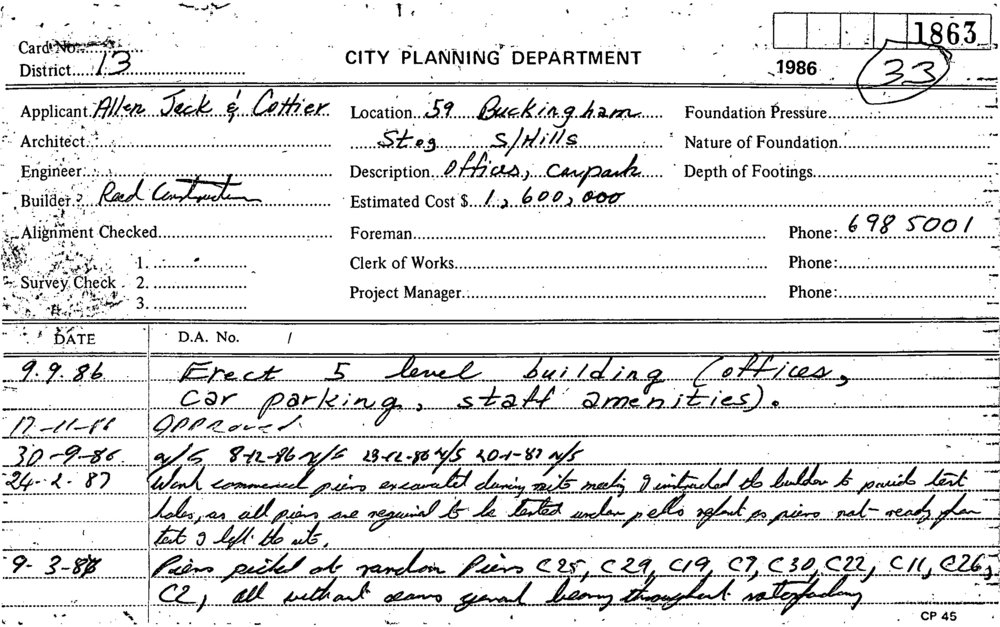 1863
Card No.
District 13
CITY PLANNING DEPARTMENT
1986
33
Applicant Allen Jack & Cottier Location 59 Buckingham Foundation Pressure
Architect S/Hills Nature of Foundation
Engineer Description Offices, carpark Depth of Footings
Builder Reed Construction Estimated Cost $ 1,600,000
Alignment Checked Foreman Phone: 698 5001
1. Clerk of Works Phone:
Survey Check 2.
Project Manager Phone:
3.
DATE D.A. No. /
9.9.86 Erect 5 level building (offices,
car parking, staff amenities).
17-11-86 Approved
30-9-86 n/s 8-12-86 n/s 23-12-86 n/s 20-1-87 n/s
24-2-87 Work commenced piers excavated during site meeting I instructed the builder to provide test
holes, as all piers are required to be tested under as piers not ready for
test I left the site.
9-3-87 Piers at random Piers C25, C29, C19, C7, C30, C22, C11, C26,
C2, all without seams general bearing throughout satisfactory
CP 45